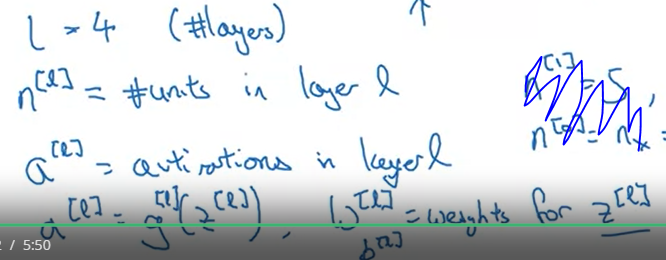 l = 4 (#layers)
n^[l] = #units in layer l
a^[l] = activations in layer l
a^[l] = g^[l](z^[l]), W^[l] = weights for z^[l]
b^[l]
/ 5:50